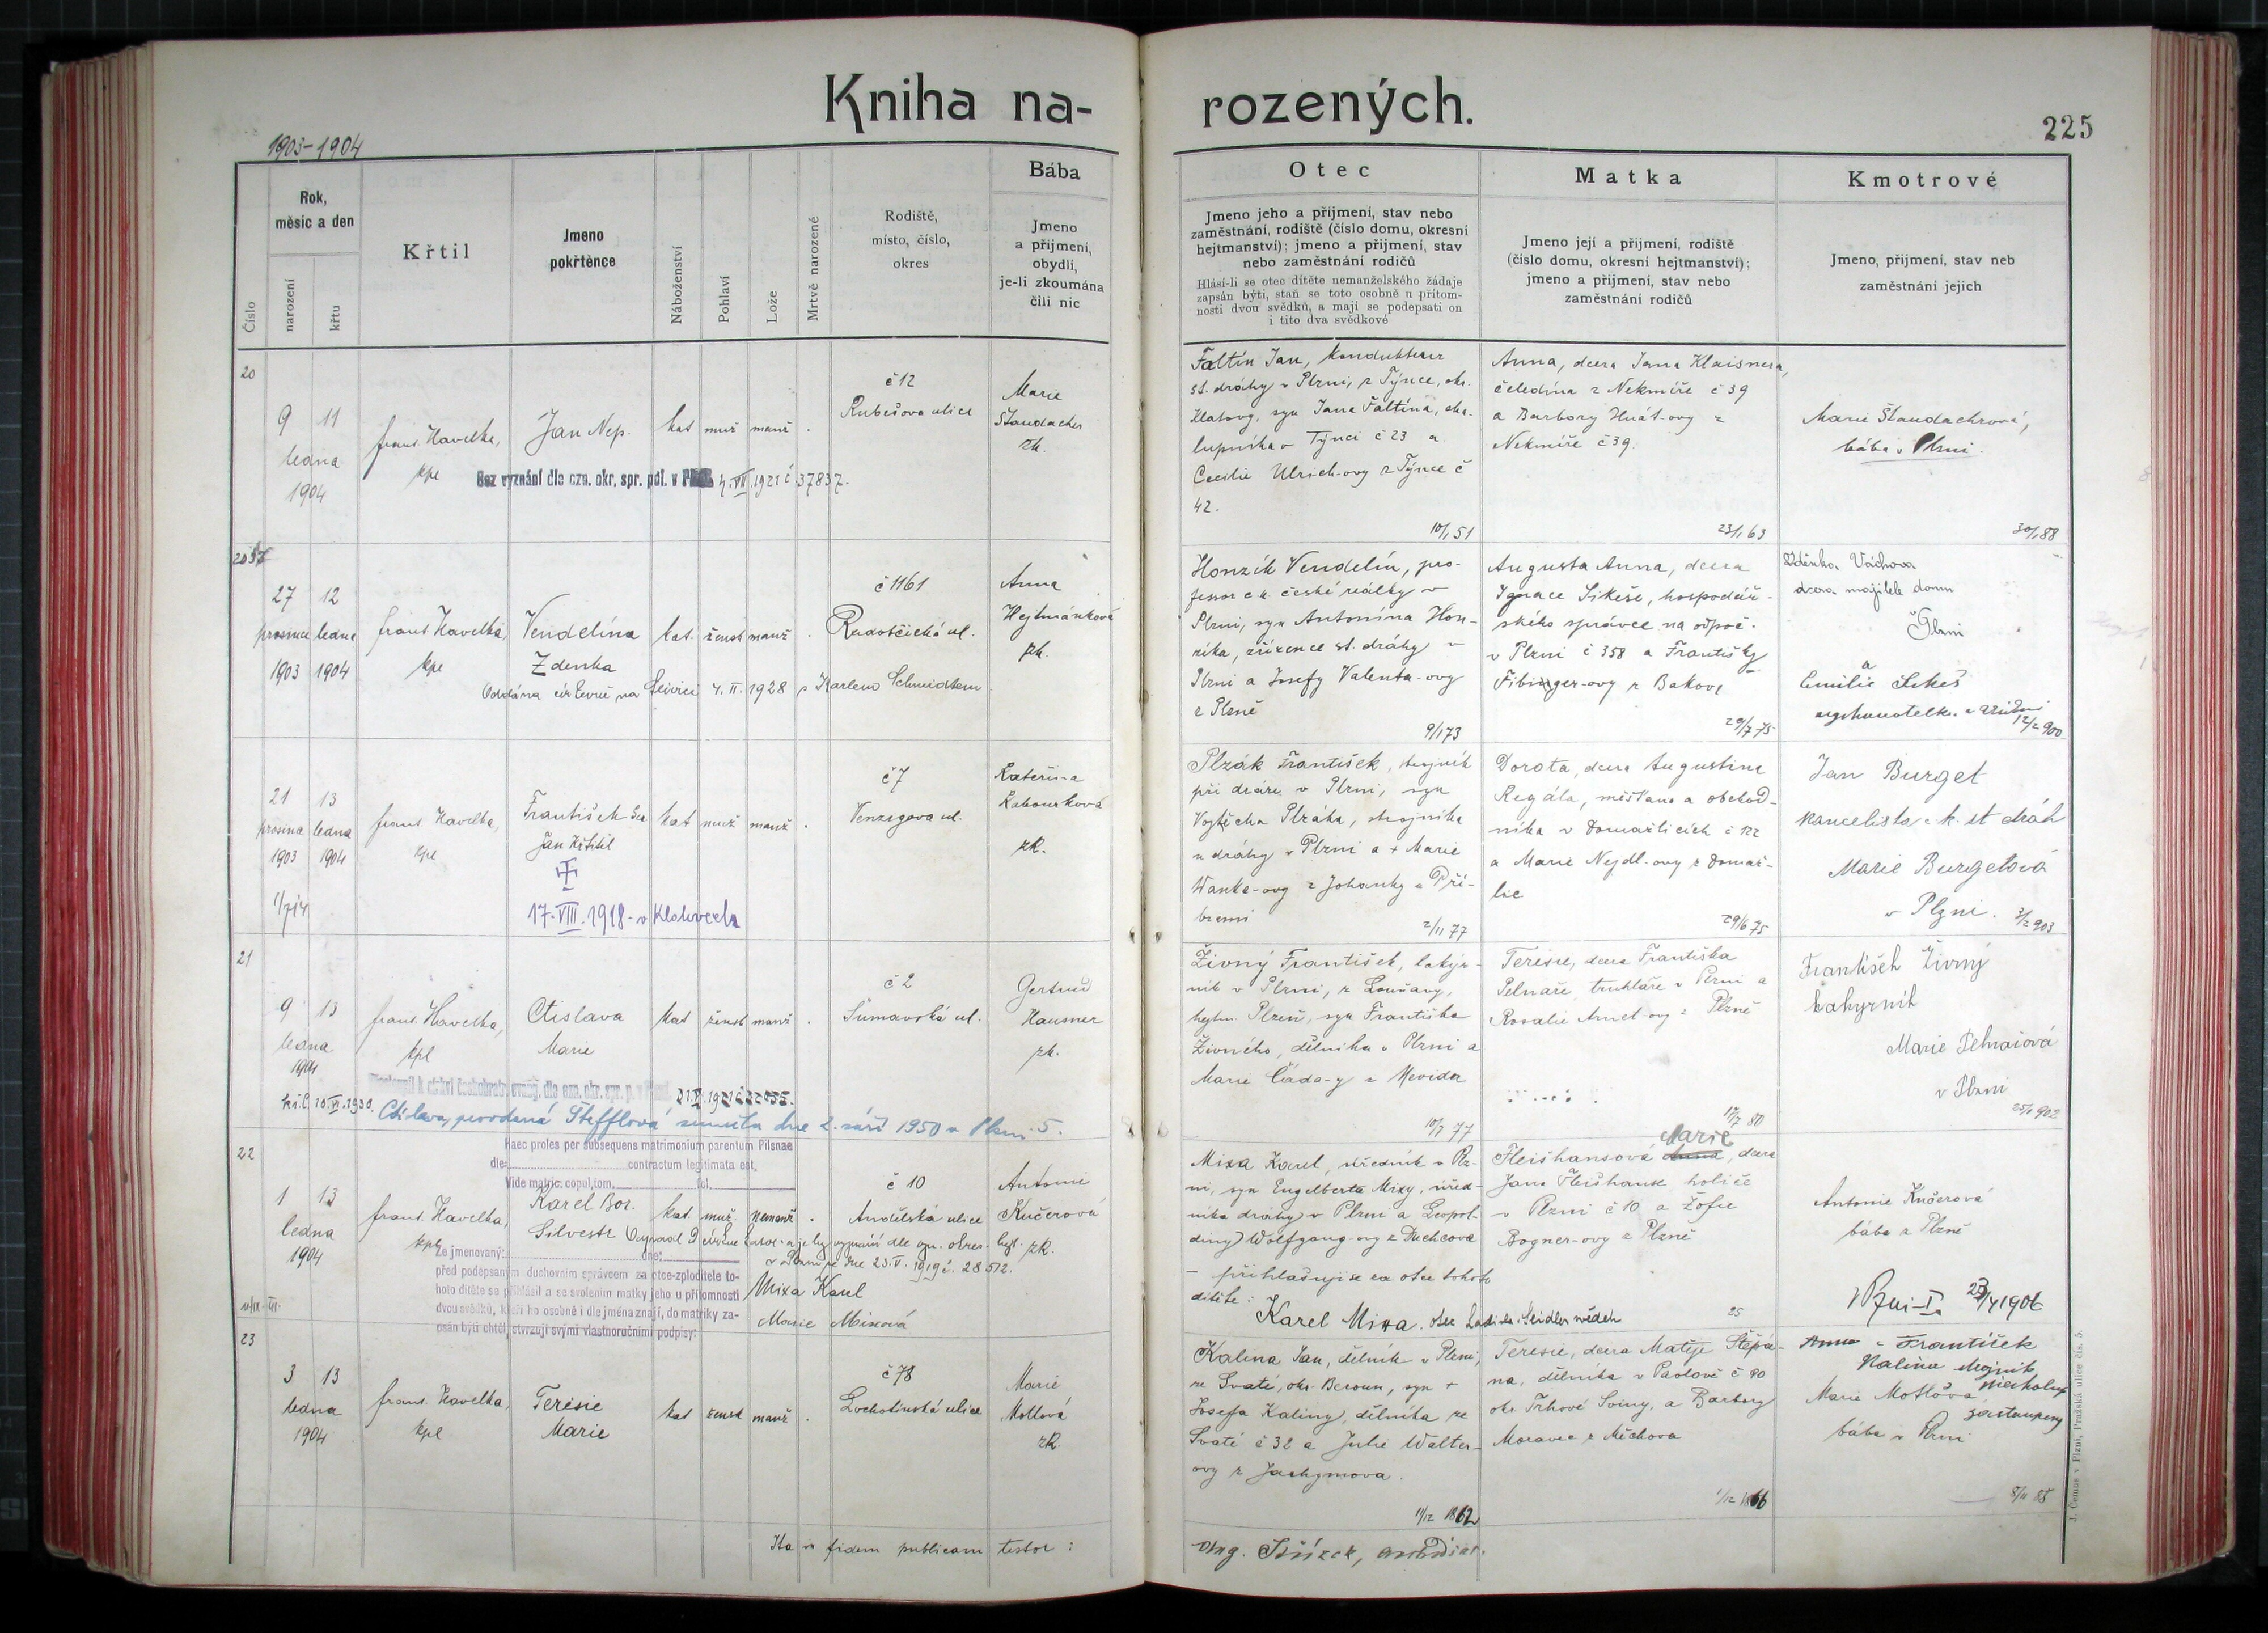 Kniha na-
rozených.
225
1903-1904
Číslo
Rok,
měsíc a den
narození
křtu
Křtil
Jmeno
pokřtěnce
Náboženství
Pohlaví
Lože
Mrtvě narozené
Rodiště,
místo, číslo,
okres
Bába
Jmeno
a příjmení,
obydlí,
je-li zkoumána
čili nic
Otec
Jmeno jeho a příjmení, stav nebo
zaměstnání, rodiště (číslo domu, okresní
hejtmanství); jmeno a příjmení, stav
nebo zaměstnání rodičů
Hlásí-li se otec dítěte nemanželského žádaje
zapsán býti, staň se toto osobně u přítom-
nosti dvou svědků, a mají se podepsati on
i tito dva svědkové
Matka
Jmeno její a příjmení, rodiště
(číslo domu, okresní hejtmanství);
jmeno a příjmení, stav nebo
zaměstnání rodičů
Kmotrové
Jmeno, příjmení, stav neb
zaměstnání jejich
20
9 11
ledna
1904
frant. Havelka,
kpl
Jan Nep.
kat muž manž .
č 12
Rubešova ulice
Marie
Štaudacher
zk.
Bez vyznání dle ozn. okr. spr. pol. v 1921 č. 37837.
Faltín Jan, kondukteur
st. dráhy v Plzni, z Týnce, okr.
Klatovy, syn Jana Faltína, cha-
lupníka v Týnci č 23 a
Cecilie Ulrich-ovy z Týnce č
42.
10/1 51
Anna, dcera Jana Klaisnera,
čeledína z Nekmíře č 39
a Barbory Hnát-ovy z
Nekmíře č 39.
23/1 63
Marie Štaudachrová,
bába v Plzni.
30/1 88
27 12
prosince ledna
1903 1904
frant Havelka,
kpl
Vendelína
Zdenka
kat. žensk manž .
č 1161
Radočická ul.
Anna
Hejtmánková
zk.
Oddána církevně na 4. II. 1928 s Karlem Schmidtem
Honzík Vendelín, pro-
fessor c.k. české reálky v
Plzni, syn Antonína Hon-
zíka, zřízence st. dráhy v
Plzni a Josefy Valenta-ovy
z Plzně
9/1 73
Augusta Anna, dcera
Ignace Sikeše, hospodář-
ského správce na odpoč.
v Plzni č 358 a Františky
Fibinger-ovy z Bakova
29/7 75
Zdenka Váchova
dcera majitele domu
Plzni
a
Emilie
12/2 900
21 13
prosince ledna
1903 1904
frant. Havelka,
kpl
František Ser.
Jan Křtitel
kat muž manž .
č 7
Venzigova ul.
Kateřina
Kabourková
zk.
17. VIII. 1918 v
Plzák František, strojník
při dráze v Plzni, syn
Vojtěcha Plzáka, strojníka
u dráhy v Plzni a + Marie
Wanka-ovy z Johanky u Pří-
brami
2/11 77
Dorota, dcera Augustina
Regála, měšťana a obchod-
níka v Domažlicích č 122
a Marie Nejdl-ovy z Domaž-
lic
29/6 75
Jan Burget
kancelista c. k. st drah
Marie Burgetová
v Plzni.
3/2 903
21
9 13
ledna
1904
frant. Havelka,
kpl
Ctislava
Marie
kat žensk manž .
č 2
Šumavská ul.
Gertrud
Hausner
zk.
Ctislava, provdaná Štefflová zemřela dne 2. září 1950 v Plzni 5.
Živný František, lakýr-
ník v Plzni, z Loušavy,
hejtm. Plzeň, syn Františka
Živného, dělníka v Plzni a
Marie Čáda-y z
10/7 77
Teresie, dcera Františka
Pelnaře, truhláře v Plzni a
Rosalie z Plzně
František Živný
Lakyrník
Marie Pelnařová
v Plzni
25/1 902
22
1 13
ledna
1904
frant. Havelka,
kpl
Haec proles per subsequens matrimonium parentum Pilsnae
die contractum legitimata est.
Vide matric. copul. tom. fol.
Karel Bor.
Silvestr
kat. muž nemanž .
č 10
Andělská ulice
Antonie
Kučerová
zk.
v Plzni ze dne 23. V. 1919 č. 28 512.
Že jmenovaný: dne:
před podepsaným duchovním správcem za otce-zploditele to-
hoto dítěte se přihlásil a se svolením matky jeho u přítomnosti
dvou svědků, kteří ho osobně i dle jména znají, do matriky za-
psán býti chtěl, stvrzují svými vlastnoručními podpisy:
Mixa Karel
Marie Mixová
Mixa Karel, úředník v Plz-
ni, syn Engelberta Mixy, úřed-
níka dráhy v Plzni a Leopol-
diny Wolfgang-ovy z Duchcova
- přihlašuji se za otce tohoto
dítěte:
Karel Mixa. otec
Fleišhansová Anna Marie, dcera
Jana Fleišhanse holiče
v Plzni č 10 a Žofie
Bogner-ovy z Plzně
Antonie Kučerová
bába z Plzně
23
3 13
ledna
1904
frant. Havelka,
kpl
Teresie
Marie
kat žensk manž .
č 78
Lochotínská ulice
Marie
Motlová
zk
Kalina Jan, dělník v Plzni,
ze Svaté, okr. Beroun, syn +
Josefa Kaliny, dělníka ze
Svaté č 32 a Julie Walter-
ovy z Jachymova.
11/12 1862
Teresie, dcera Matěje Štěpá-
na, dělníka v Pavlově č 90
okr. Trhové Sviny, a Barbory
Moravec z Měchova
1/12 1866
František
Kalina strojník
Marie Motlová
zastoupeny
bába v Plzni
Ita in fidem publicam testor:
J. Černus v Plzni, Pražská ulice čís. 5.